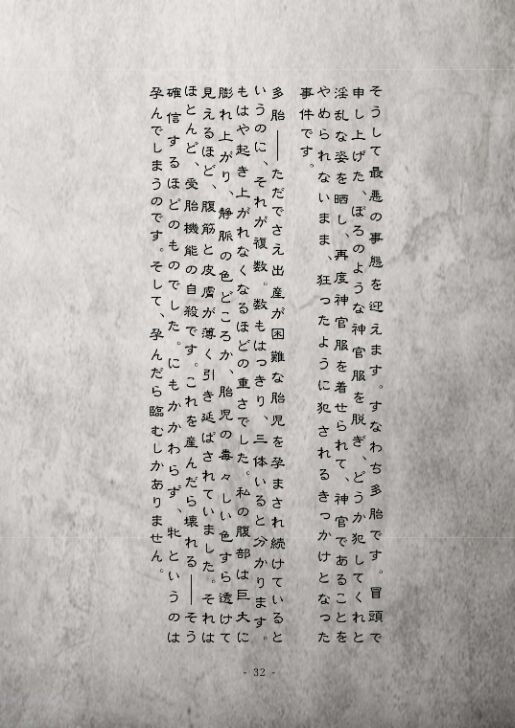 そうして最悪の事態を迎えます。すなわち多胎です。冒頭で
申し上げた、ぼろのような神官服を脱ぎ、どうか犯してくれと
淫乱な姿を晒し、再度神官服を着せられて、神官であることを
やめられないまま、狂ったように犯されるきっかけとなった
事件です。
多胎――ただでさえ出産が困難な胎児を孕まされ続けていると
いうのに、それが複数。数もはっきり、三体いると分かります。
もはや起き上がれなくなるほどの重さでした。私の腹部は巨大に
膨れ上がり、静脈の色どころか、胎児の毒々しい色すら透けて
見えるほど、腹筋と皮膚が薄く引き延ばされていました。それは
ほとんど、受胎機能の自殺です。これを産んだら壊れる――そう
確信するほどのものでした。にもかかわらず、牝というのは
孕んでしまうのです。そして、孕んだら臨むしかありません。
- 32 -